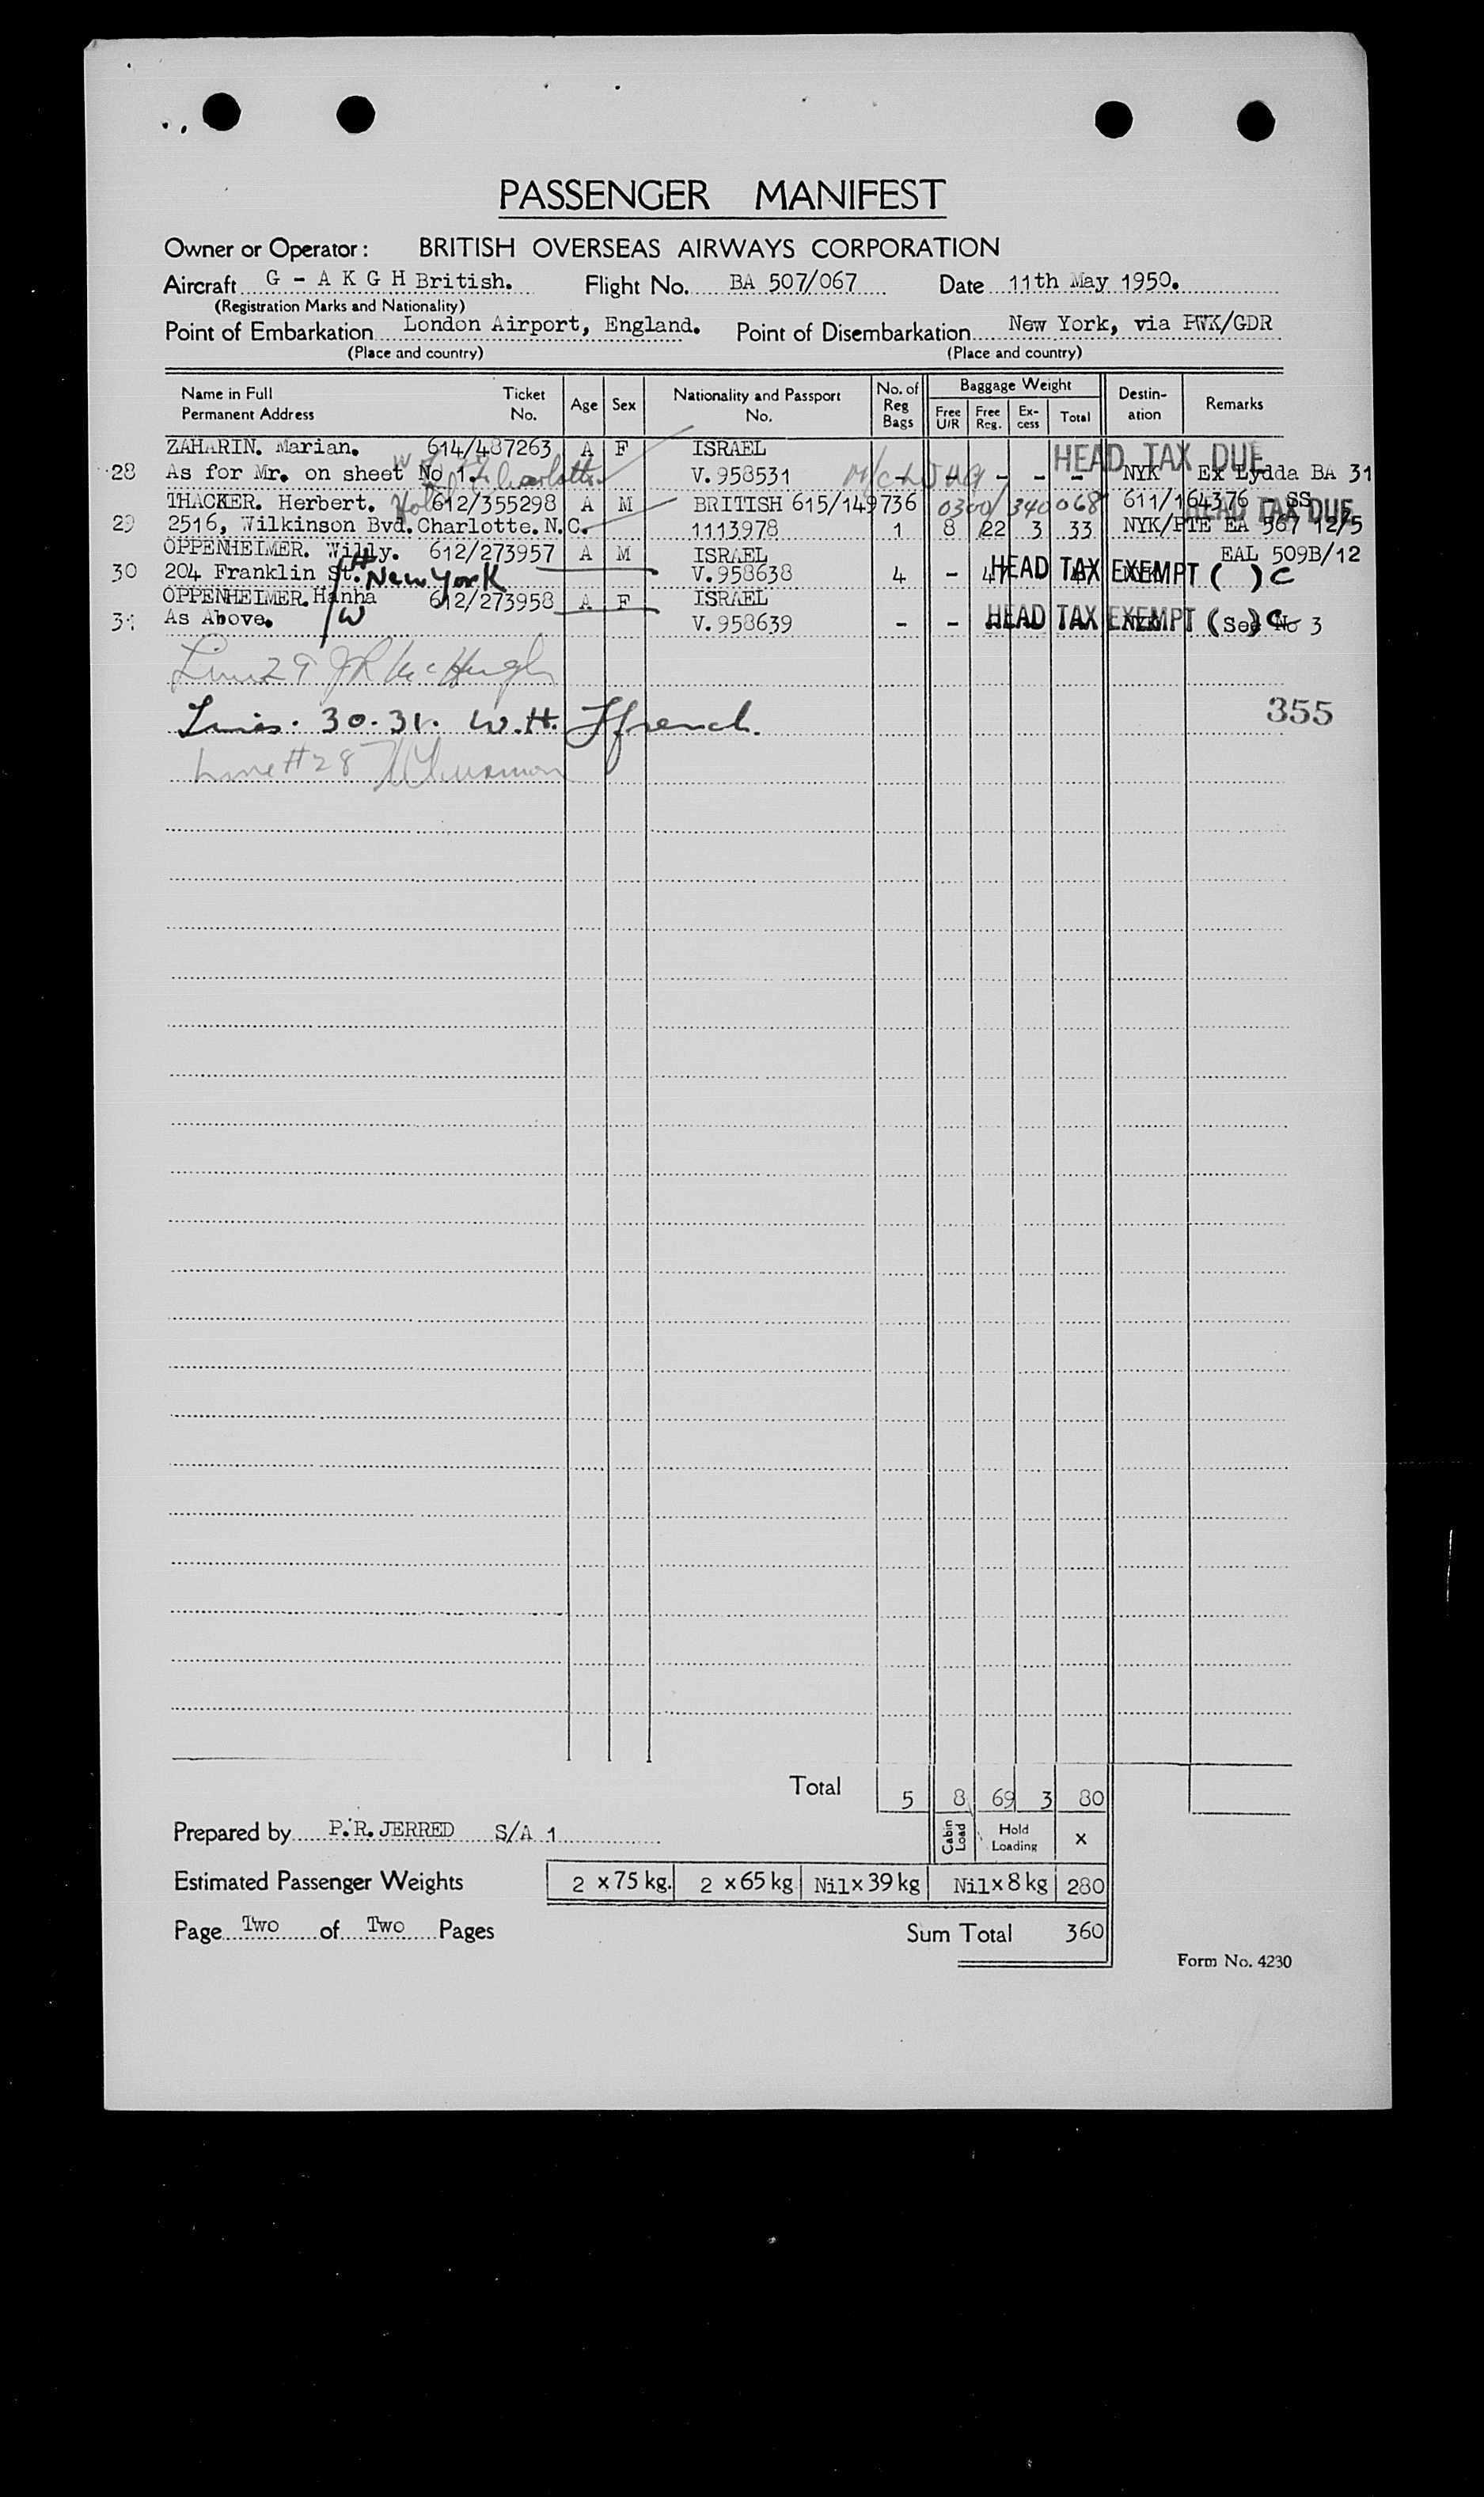 PASSENGER MANIFEST
Owner or Operator: BRITISH OVERSEAS AIRWAYS CORPORATION
Aircraft G - A K G H British. Flight No. BA 507/067 Date 11th May 1950.
(Registration Marks and Nationality)
Point of Embarkation London Airport, England. Point of Disembarkation New York, via PWK/GDR
(Place and country) (Place and country)
Name in Full Permanent Address Ticket No. Age Sex Nationality and Passport No. No. of Reg Bags Baggage Weight Free U/R Free Reg. Ex- cess Total Destin- ation Remarks
ZAHARIN. Marian. 614/487263 A F ISRAEL HEAD TAX DUE
28 As for Mr. on sheet No 1. V.958531 - - - - - NYK Ex Lydda BA 31
THACKER. Herbert. 612/355298 A M BRITISH 615/149736 0300/340068 611/164376 - SS HEAD TAX DUE
29 2516, Wilkinson Bvd. Charlotte. N.C. 1113978 1 8 22 3 33 NYK/PTE EA 567 12/5
OPPENHEIMER. Willy. 612/273957 A M ISRAEL EAL 509B/12
30 204 Franklin St. New York V.958638 4 - 47 HEAD TAX EXEMPT ( ) C
OPPENHEIMER. Hanha 612/273958 A F ISRAEL
31 As Above. W V.958639 - - HEAD TAX EXEMPT ( ) C See No 3
Line 29 J R McHugh
Lines. 30. 31. W.H. Ffrench.
355
Line # 28
Total 5 8 69 3 80
Prepared by P.R. JERRED S/A 1 Cabin Load Hold Loading x
Estimated Passenger Weights 2 x 75 kg. 2 x 65 kg Nil x 39 kg Nil x 8 kg 280
Page Two of Two Pages Sum Total 360
Form No. 4230